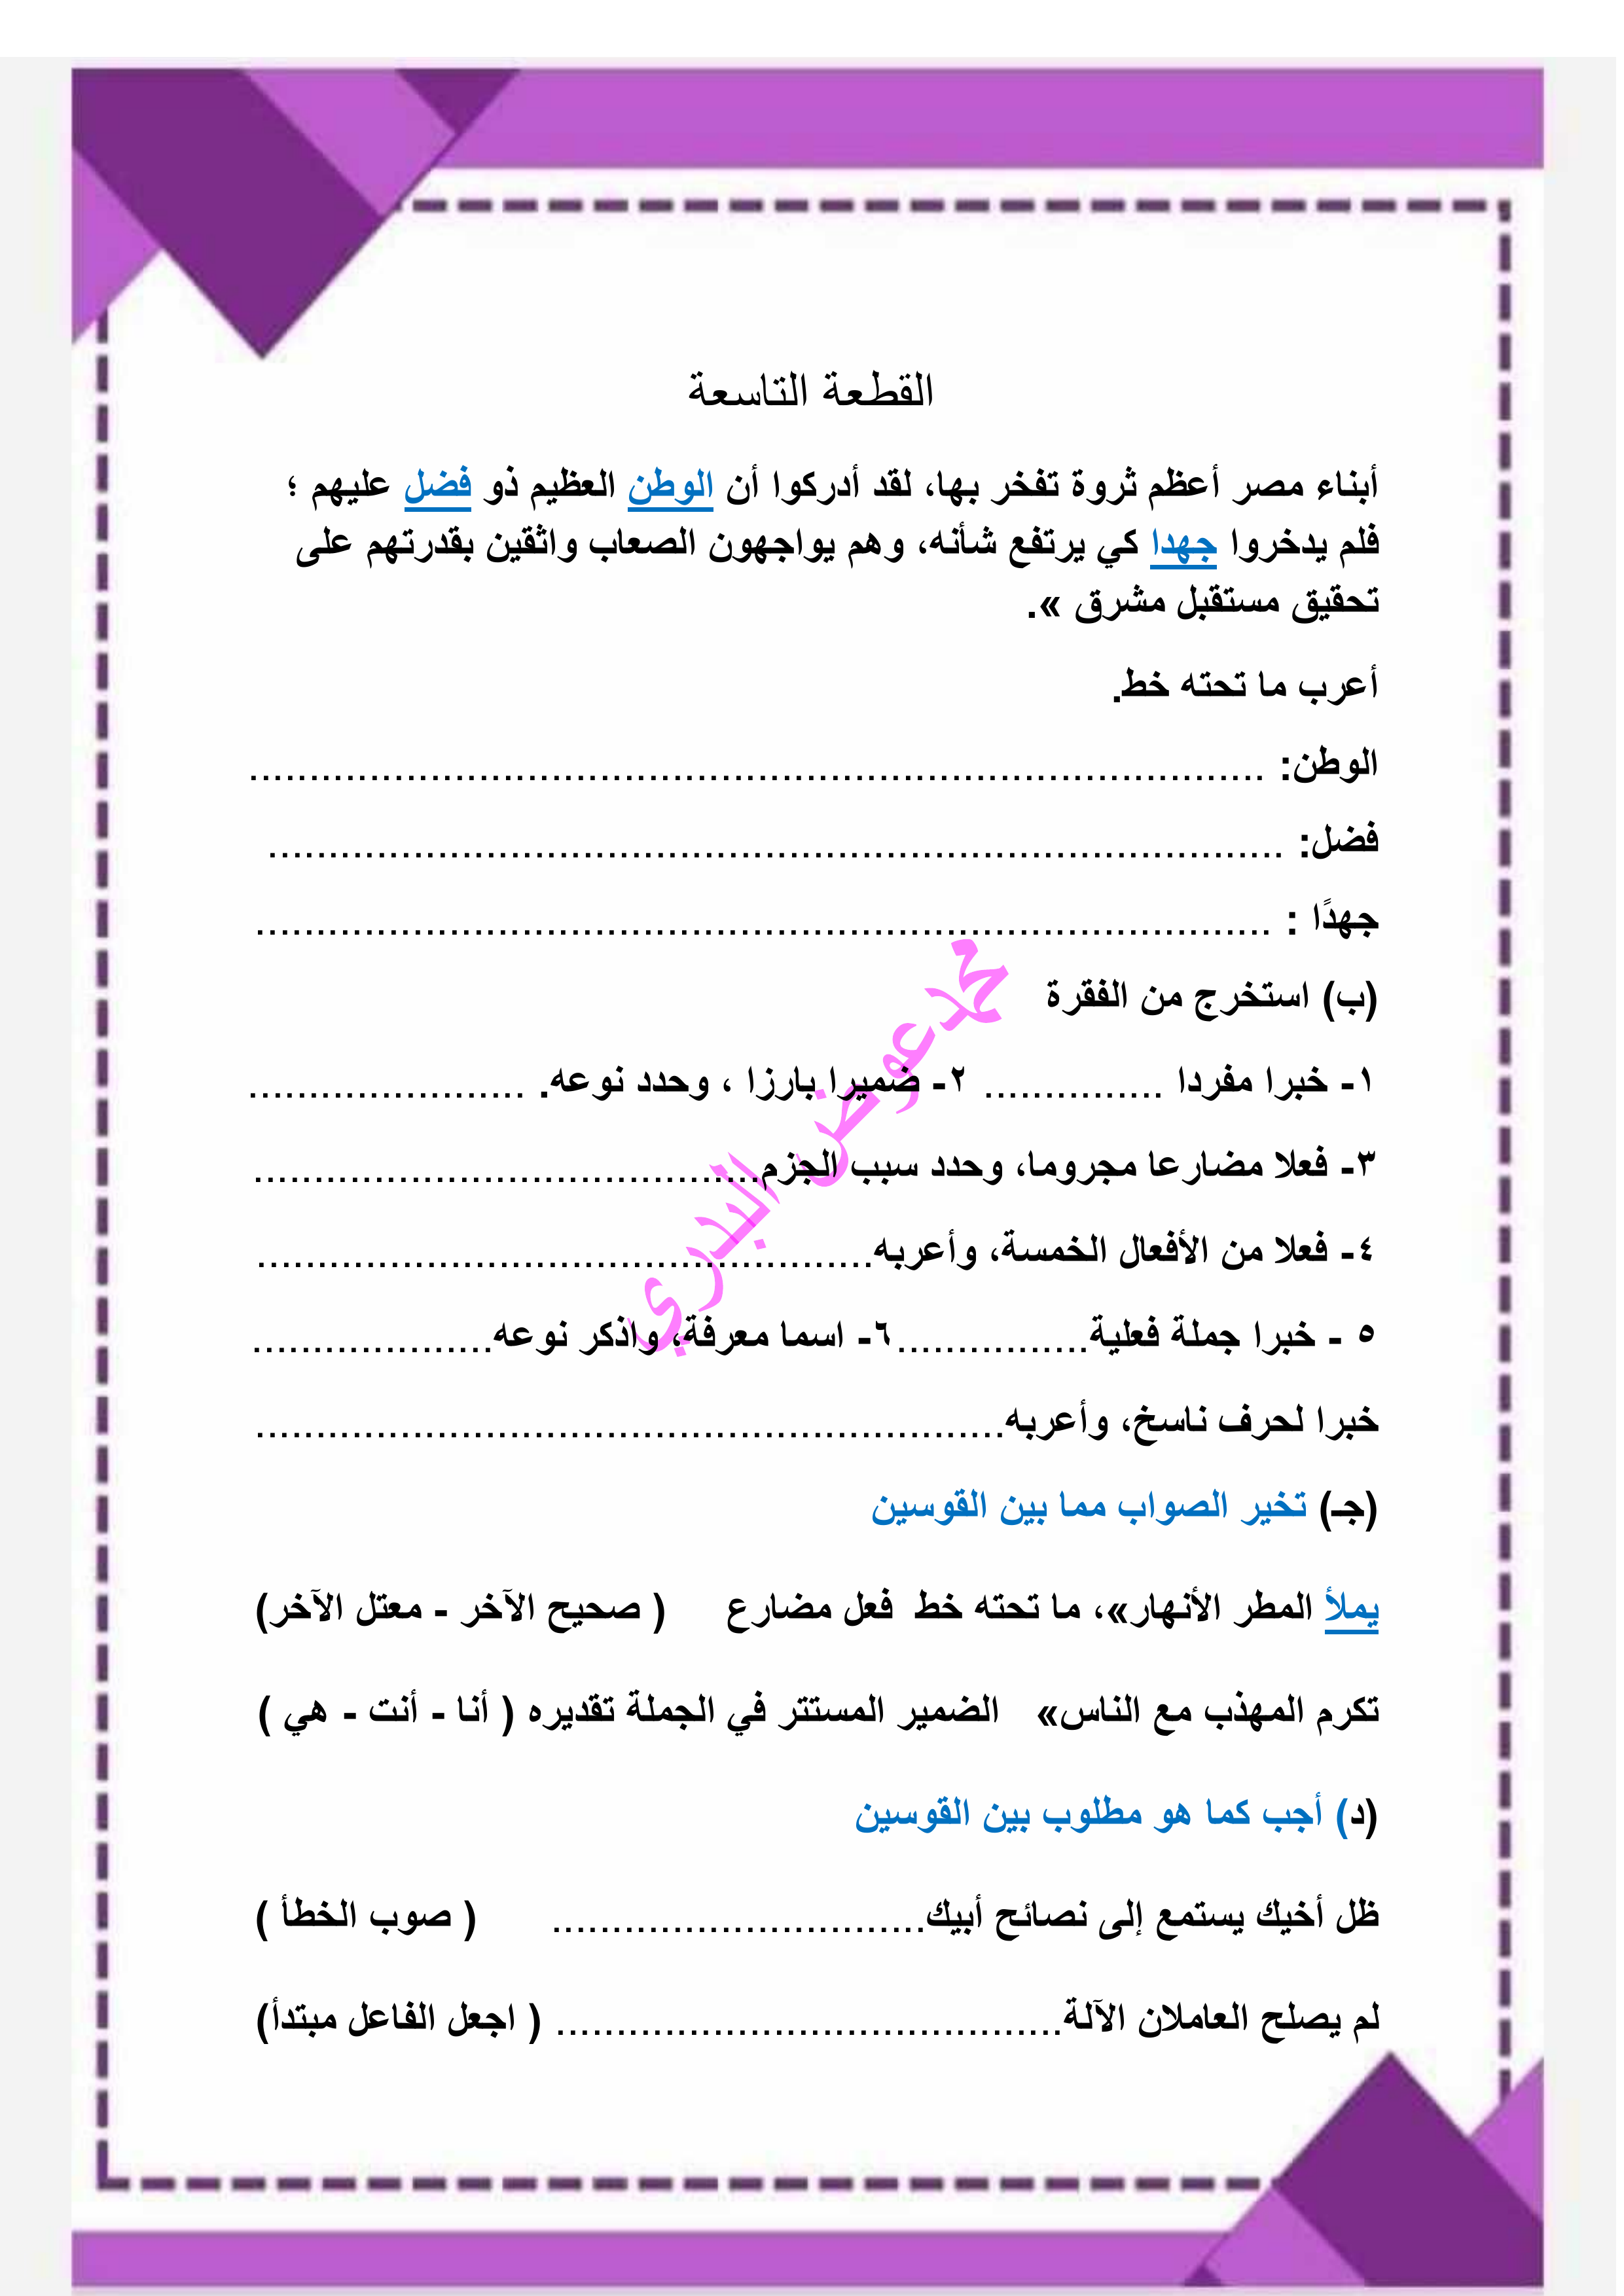 القطعة التاسعة
أبناء مصر أعظم ثروة تفخر بها، لقد أدركوا أن الوطن العظيم ذو فضل عليهم ؛
فلم يدخروا جهدا كي يرتفع شأنه، وهم يواجهون الصعاب واثقين بقدرتهم على
تحقيق مستقبل مشرق ».
أعرب ما تحته خط.
الوطن: ....................................................................................
فضل: ....................................................................................
جهدًا : ....................................................................................
(ب) استخرج من الفقرة
١- خبرا مفردا ............... ٢- ضميرا بارزا ، وحدد نوعه. .......................
٣- فعلا مضارعا مجروما، وحدد سبب الجزم..........................................
٤- فعلا من الأفعال الخمسة، وأعربه...................................................
٥ - خبرا جملة فعلية................ ٦- اسما معرفة، واذكر نوعه....................
خبرا لحرف ناسخ، وأعربه..............................................................
(جـ) تخير الصواب مما بين القوسين
يملأ المطر الأنهار»، ما تحته خط فعل مضارع ( صحيح الآخر - معتل الآخر)
تكرم المهذب مع الناس» الضمير المستتر في الجملة تقديره ( أنا - أنت - هي )
(د) أجب كما هو مطلوب بين القوسين
ظل أخيك يستمع إلى نصائح أبيك............................... ( صوب الخطأ )
لم يصلح العاملان الآلة.......................................... ( اجعل الفاعل مبتدأ)
محمد عوض البدري